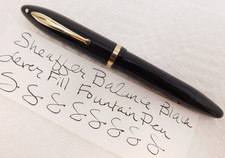 Sheaffer Balance Black
Lever Fill Fountain Pen
S S S S S S S S